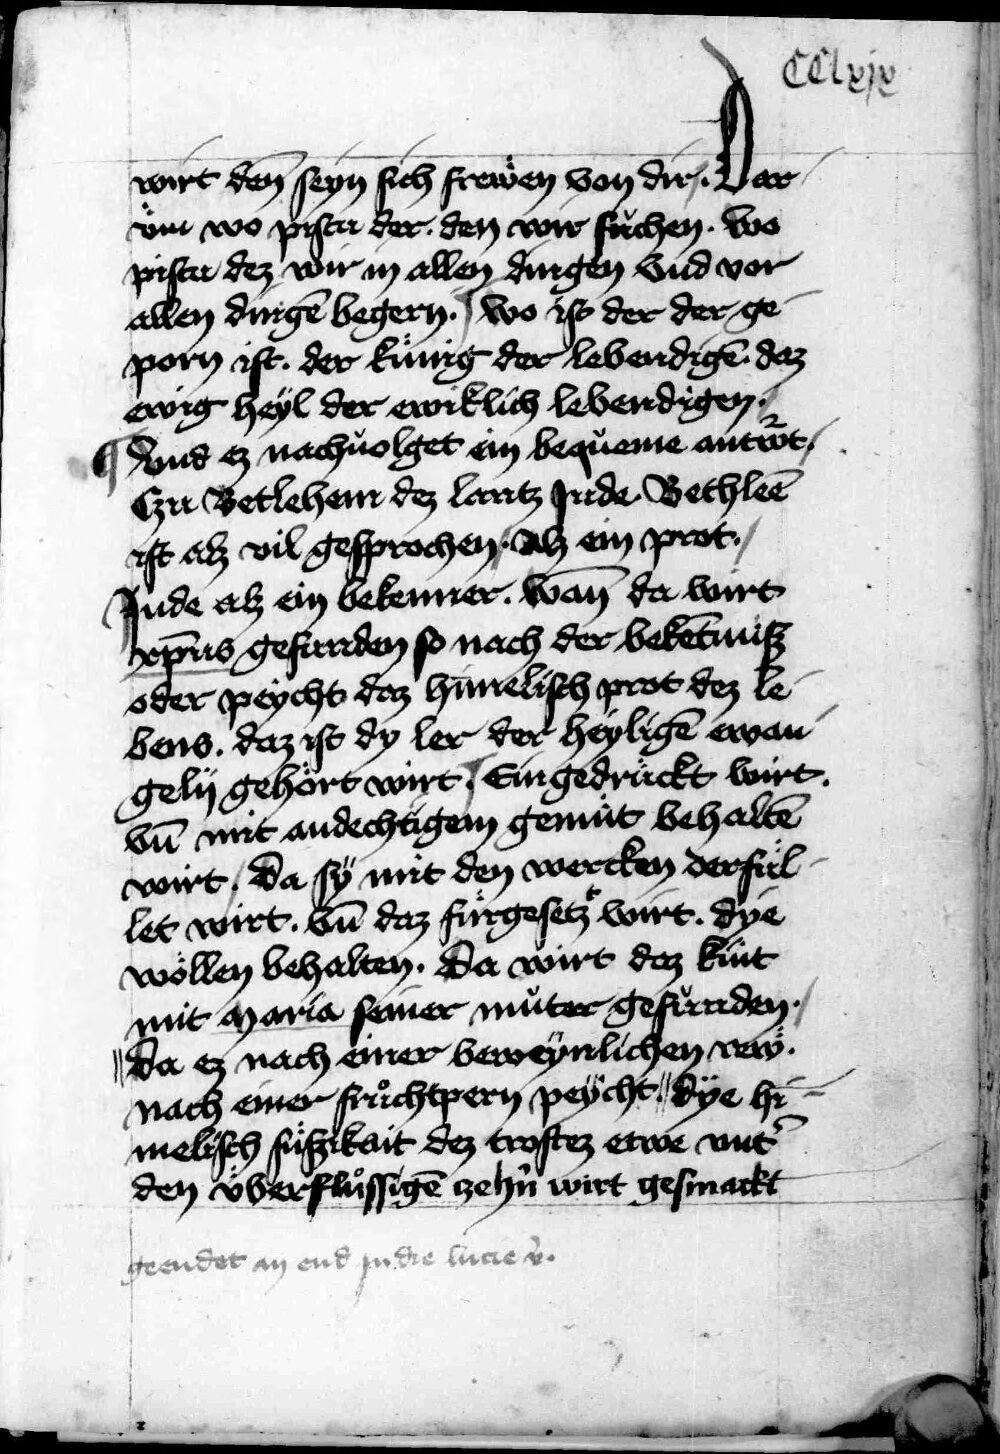 CClxix
wirt den̄ seyn sich frewen von dir. Dar
üm wo pistu der. den wir sůchen. wo
pistu dez wir in allen dingen vnd vor
allen dingē begern. wo ist der der ge
porn ist. der künig der lebendigē. daz
ewig heyl der ewiklich lebendigen.
¶ Vnd ez nachuolget ein bequeme antwͦt.
Czu Betlehem dez lantz Jude. Bethleē
ist alz vil gesprochen. Alz ein prot.
Jude alz ein bekenner. wan̄ da wirt
xp̄us gefunden so nach der bekētnüsz
oder peycht daz himelisch prot dez le
bens. daz ist dy ler der heyligē ewan
gelij gehört wirt. Eingedrückt wirt.
vn̄ mit andechtigem gemüt behaltē
wirt. Da sÿ mit den wercken derfül
let wirt. vn̄ daz fürgesetzt wirt. dye
wöllen behalten. Da wirt daz kint
mit maria seiner můter gefunden.
Da ez nach einer beweynlichen rew.
nach einer frůchtpern peÿcht. dÿe hi
melisch süszikait dez trostez etwe vnt̾
den vberflüssigē zehn̄ wirt gesmackt
geendet an end in die lucie v̾.